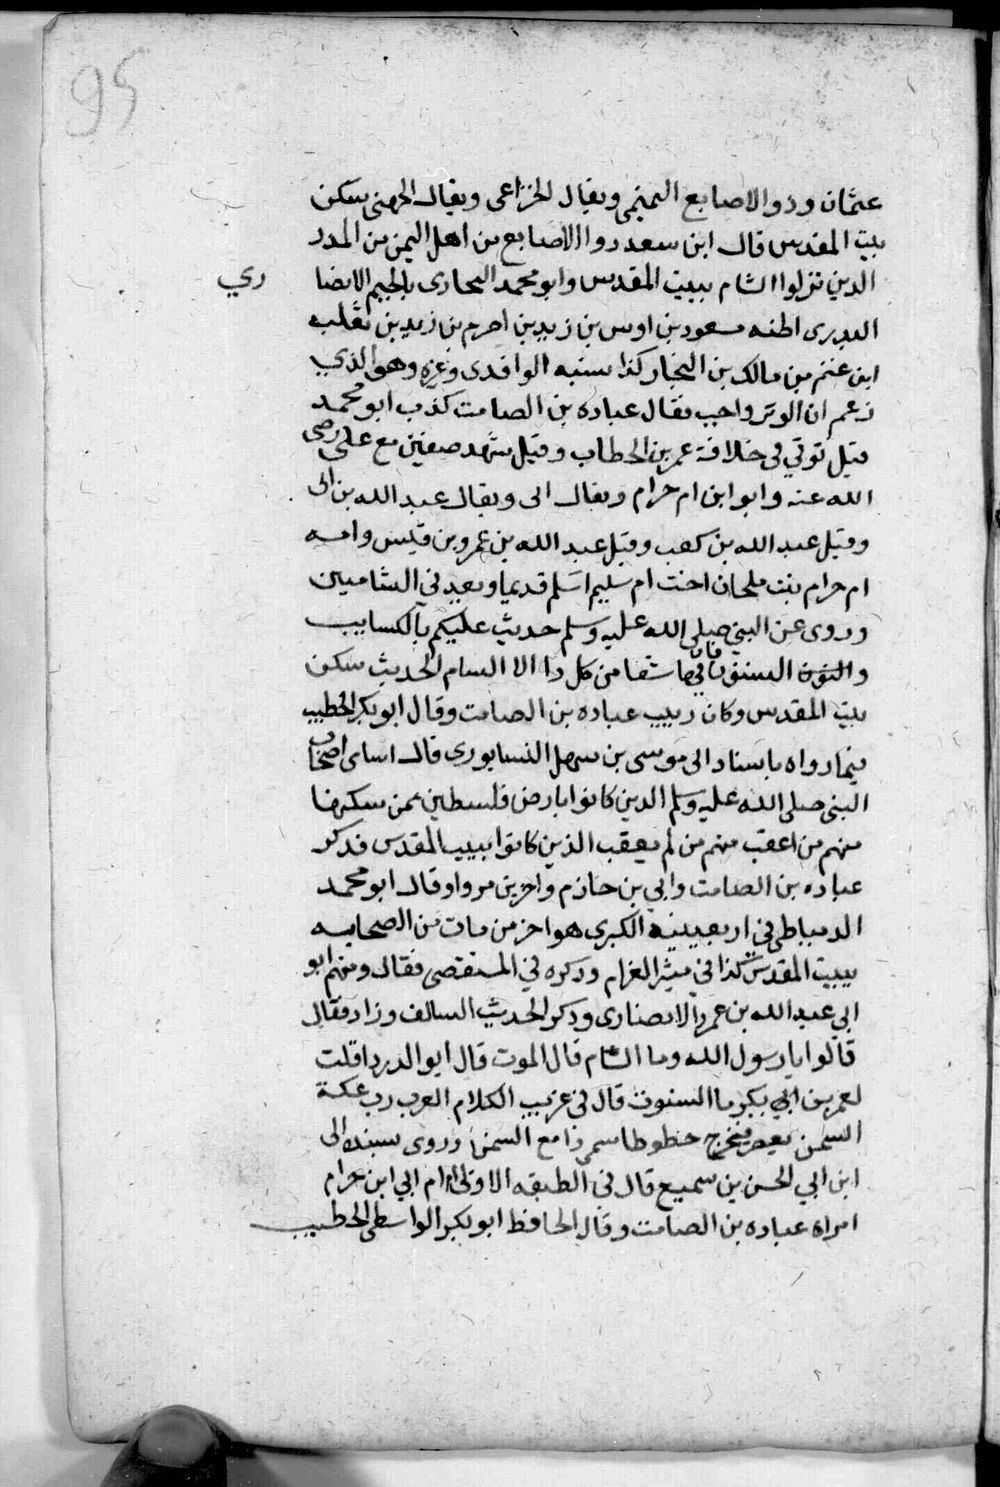 95
عثمان وذو الاصابع التميمى ويقال الخزاعى ويقال الجهنى سكن
بيت المقدس قال ابن سعد ذوا الاصابع من اهل اليمن من المدد
الذين نزلوا الشام ببيت المقدس وابو محمد النجارى بالجيم الانصا ري
البدرى اظنه مسعود بن اوس بن زيد بن احرم بن زيد بن ثعلبه
ابن غنم بن مالك بن النجار كذا نسبه الواقدى وغيره وهو الذي
زعم ان الوتر واجب فقال عباده بن الصامت كذب ابو محمد
قيل توفي فى خلافة عمر بن الخطاب وقيل شهد صفين مع على رضى
الله عنه وابو ابن ام حرام ويقال ابى ويقال عبد الله بن ابى
وقيل عبد الله بن كعب وقيل عبد الله بن عمرو بن قيس وامه
ام حرام بنت ملحان اخت ام سليم اسلم قديما ويعد في الشاميين
وروى عن النبي صلى الله عليه وسلم حديث عليكم بالكسابيب
والنون السنوت فان فيها شفا من كل دا الا السام الحديث سكن
بيت المقدس وكان ربيب عباده بن الصامت وقال ابو بكر الخطيب
فيما رواه باسناد الى موسى بن سهل النسابورى قال اسامى اصحاب
النبى صلى الله عليه وسلم الذين كانوا بارض فلسطين ممن سكنها
منهم من اعقب منهم من لم يعقب الذين كانوا ببيت المقدس فذكر
عباده بن الصامت وابي بن حازم واخرين مروا وقال ابو محمد
الدمياطى في اربعينيه الكبرى هو اخر من مات من الصحابه
ببيت المقدس كذا فى مثير الغرام وذكره في المستقصى فقال ومنهم ابو
ابي عبد الله بن عمرو الانصارى وذكر الحديث السالف وزاد فقال
قالوا يا رسول الله وما السام قال الموت قال ابو الدردا قلت
لعمر بن ابي بكر ما السنوت قال فى غريب الكلام العرب رب عكة
السمن يعصر فيخرج خطوطا سمرذا مع السمن وروى بسنده الى
ابن ابي الحسن بن سميع قال فى الطبقه الاولى ام ابي ابن حرام
امراة عباده بن الصامت وقال الحافظ ابو بكر الواسطى الخطيب